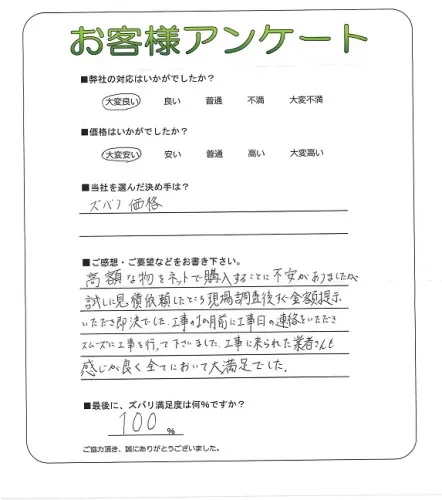 お客様アンケート
■弊社の対応はいかがでしたか?
大変良い 良い 普通 不満 大変不満
■価格はいかがでしたか?
大変安い 安い 普通 高い 大変高い
■当社を選んだ決め手は?
ズバリ価格
■ご感想・ご要望などをお書き下さい。
高額な物をネットで購入することに不安がありましたが、
試しに見積依頼したところ現場調査後すぐ金額提示
いただき即決でした。工事の1ヶ月前に工事日の連絡をいただき
スムーズに工事を行って下さいました。工事に来られた業者さんも
感じが良く全てにおいて大満足でした。
■最後に、ズバリ満足度は何%ですか?
100%
ご協力頂き、誠にありがとうございました。